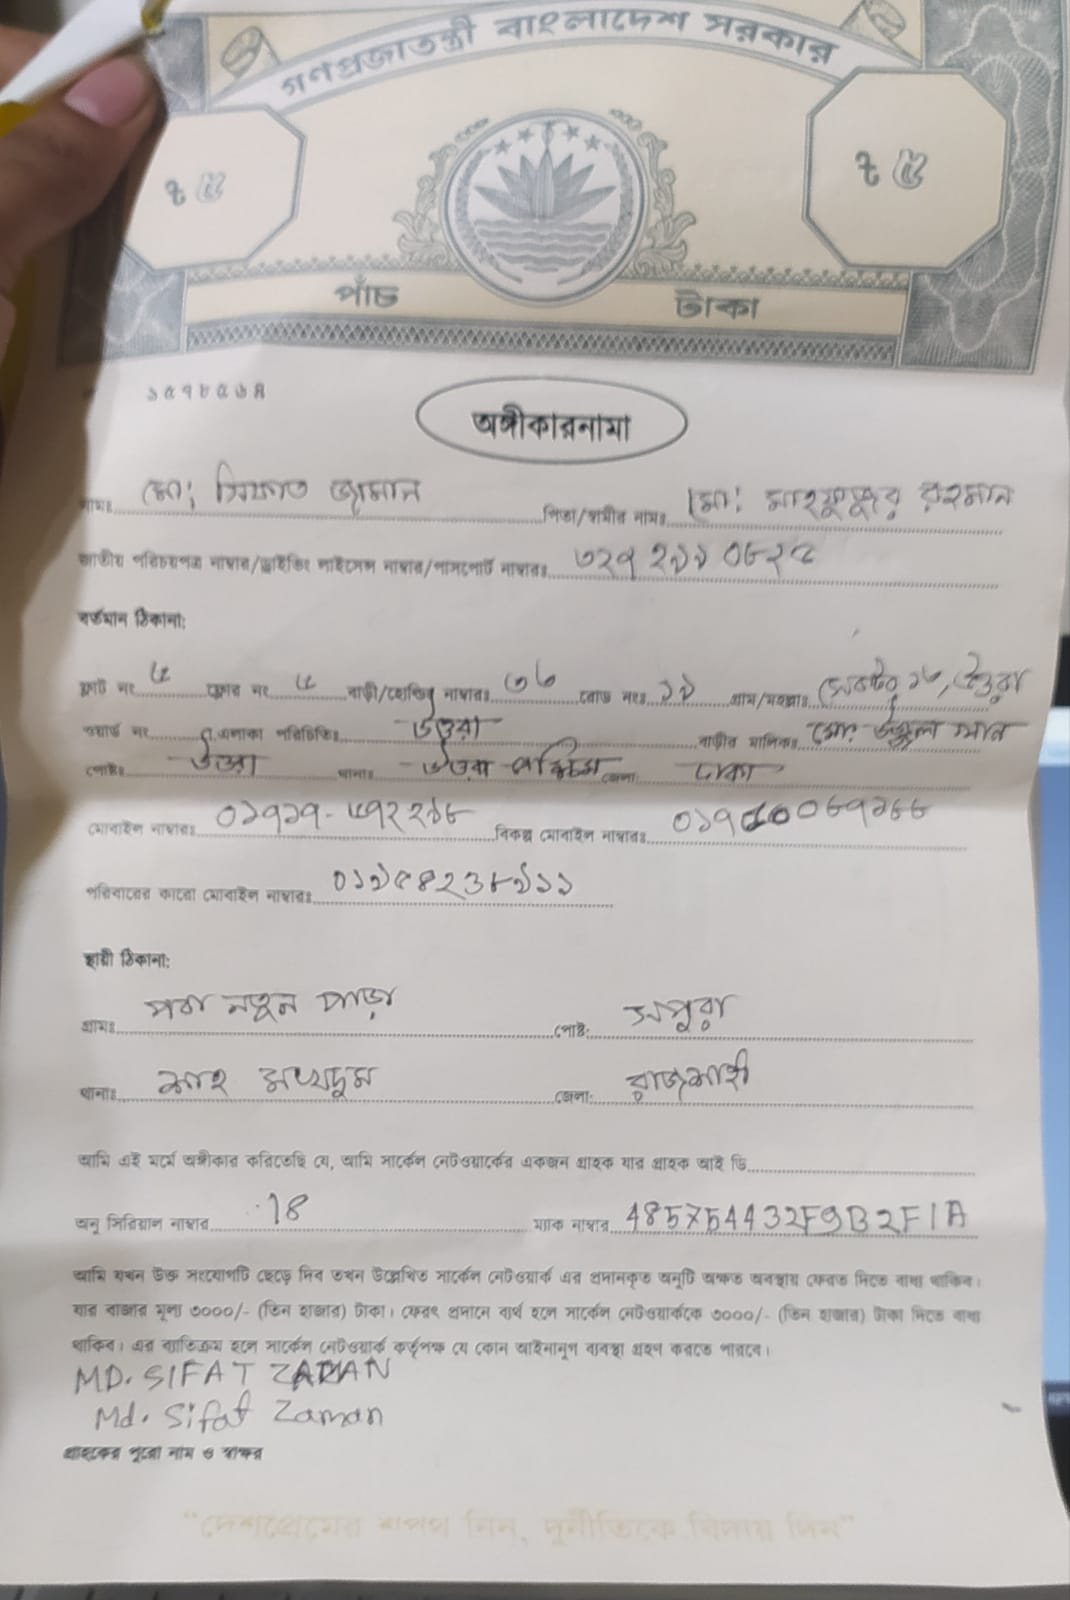 গণপ্রজাতন্ত্রী বাংলাদেশ সরকার
৳ ৫ ৳ ৫
পাঁচ টাকা
১৫৭৮৫৬৪
অঙ্গীকারনামা
নামঃ মো: সিফাত জামান পিতা/স্বামীর নামঃ মো: মাহফুজুর রহমান
জাতীয় পরিচয়পত্র নাম্বার/ড্রাইভিং লাইসেন্স নাম্বার/পাসপোর্ট নাম্বারঃ ৩২৭২৯৯০৮২৫
বর্তমান ঠিকানা:
ফ্লাট নং ৫ ফ্লোর নং ৫ বাড়ী/হোল্ডিং নাম্বারঃ ৩৬ রোড নংঃ ১৯ গ্রাম/মহল্লাঃ সেক্টর ১৩, উত্তরা
ওয়ার্ড নং এলাকা পরিচিতিঃ উত্তরা বাড়ীর মালিকঃ মো:
পোষ্টঃ উত্তরা থানাঃ উত্তরা পশ্চিম জেলা: ঢাকা
মোবাইল নাম্বারঃ বিকল্প মোবাইল নাম্বারঃ
পরিবারের কারো মোবাইল নাম্বারঃ
স্থায়ী ঠিকানা:
গ্রামঃ পবা নতুন পাড়া পোষ্ট: সপুরা
থানাঃ শাহ মখদুম জেলা: রাজশাহী
আমি এই মর্মে অঙ্গীকার করিতেছি যে, আমি সার্কেল নেটওয়ার্কের একজন গ্রাহক যার গ্রাহক আই ডি
অনু সিরিয়াল নাম্বার 18 ম্যাক নাম্বার 485754432F9B2F1A
আমি যখন উক্ত সংযোগটি ছেড়ে দিব তখন উল্লেখিত সার্কেল নেটওয়ার্ক এর প্রদানকৃত অনুটি অক্ষত অবস্থায় ফেরত দিতে বাধ্য থাকিব।
যার বাজার মূল্য ৩০০০/- (তিন হাজার) টাকা। ফেরৎ প্রদানে ব্যর্থ হলে সার্কেল নেটওয়ার্ককে ৩০০০/- (তিন হাজার) টাকা দিতে বাধ্য
থাকিব। এর ব্যতিক্রম হলে সার্কেল নেটওয়ার্ক কর্তৃপক্ষ যে কোন আইনানুগ ব্যবস্থা গ্রহণ করতে পারবে।
MD. SIFAT ZAMAN
Md. Sifat Zaman
গ্রাহকের পুরো নাম ও স্বাক্ষর
"দেশপ্রেমের শপথ নিন, দুর্নীতিকে বিদায় দিন"